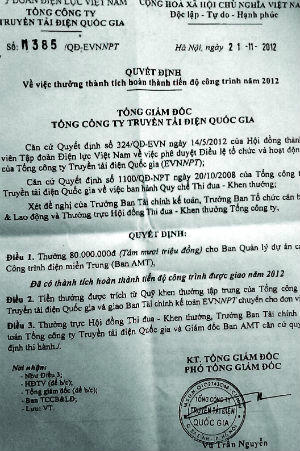 ĐOÀN ĐIỆN LỰC VIỆT NAM
TỔNG CÔNG TY
TRUYỀN TẢI ĐIỆN QUỐC GIA
CỘNG HOÀ XÃ HỘI CHỦ NGHĨA VIỆT NAM
Độc lập - Tự do - Hạnh phúc
Số: 1385 /QĐ-EVNNPT
Hà Nội, ngày 21-11-2012
QUYẾT ĐỊNH
Về việc thưởng thành tích hoàn thành tiến độ công trình năm 2012
TỔNG GIÁM ĐỐC
TỔNG CÔNG TY TRUYỀN TẢI ĐIỆN QUỐC GIA
Căn cứ Quyết định số 324/QĐ-EVN ngày 14/5/2012 của Hội đồng thành
viên Tập đoàn Điện lực Việt Nam về việc phê duyệt Điều lệ tổ chức và hoạt động
của Tổng công ty Truyền tải điện Quốc gia (EVNNPT);
Căn cứ Quyết định số 1100/QĐ-NPT ngày 20/10/2008 của Tổng công ty
Truyền tải điện Quốc gia về việc ban hành Quy chế Thi đua - Khen thưởng;
Xét đề nghị của Trưởng Ban Tài chính kế toán, Trưởng Ban Tổ chức cán bộ
& Lao động và Thường trực Hội đồng Thi đua - Khen thưởng Tổng công ty,
QUYẾT ĐỊNH:
Điều 1. Thưởng 80.000.000đ (Tám mươi triệu đồng) cho Ban Quản lý dự án các
Công trình điện miền Trung (Ban AMT),
Đã có thành tích hoàn thành tiến độ công trình được giao năm 2012
Điều 2. Tiền thưởng được trích từ Quỹ khen thưởng tập trung của Tổng công ty
Truyền tải điện Quốc gia và giao Ban Tài chính kế toán EVNNPT chuyển cho đơn vị.
Điều 3. Thường trực Hội đồng Thi đua - Khen thưởng, Trưởng Ban Tài chính kế
toán Tổng công ty Truyền tải điện Quốc gia và Giám đốc Ban AMT căn cứ quyết
định thi hành./.
Nơi nhận:
- Như Điều 3;
- HĐTV (để b/c);
- Tổng giám đốc (để b/c);
- Ban TCCB&LĐ;
- Lưu: VT.
KT. TỔNG GIÁM ĐỐC
PHÓ TỔNG GIÁM ĐỐC
TỔNG CÔNG TY
TRUYỀN TẢI ĐIỆN
QUỐC GIA
Vũ Trần Nguyễn